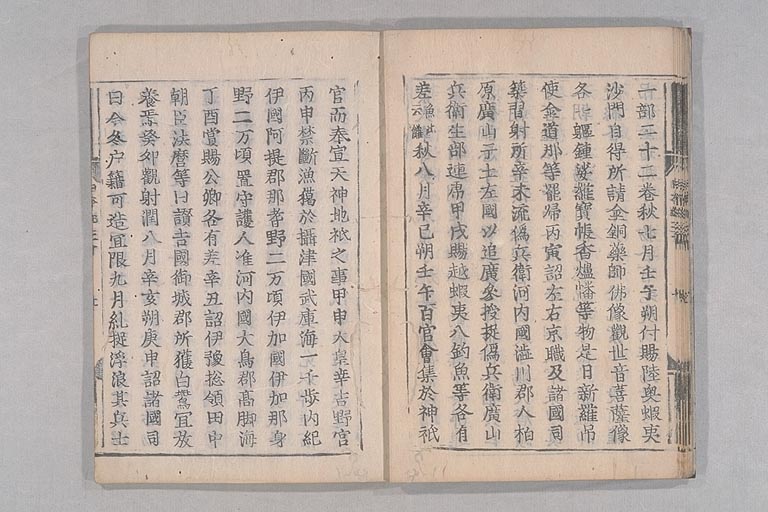 一部三十二卷秋七月壬子朔付賜陸奧蝦夷
沙門自得所請金銅藥師佛像觀世音菩薩像
各軀鍾娑羅寶帳香爐幡等物是日新羅弔
使金道那等罷歸丙寅詔左右京職及諸國司
築習射所辛未流僞兵衛河内國澁川郡人柏
原廣山于土左國以追廣參授捉僞兵衛廣山
兵衛生部連虎甲戌賜越蝦夷八釣魚等各有
差魚此云儺秋八月辛巳朔壬午百官會集於神祇
官而奉宣天神地祇之事甲申天皇幸吉野宮
丙申禁斷漁獦於攝津國武庫海一千步内紀
伊國阿提郡那耆野二万頃伊加國伊加郡身
野二万頃置守護人准河内國大鳥郡髙脚海
丁酉賞賜公卿各有差辛丑詔伊豫捴領田中
朝臣法麿等曰讃吉國御城郡所獲白鷰宜放
養焉癸卯觀射潤八月辛亥朔庚申詔諸國司
曰今冬户籍可造宜限九月糺捉浮浪其兵士